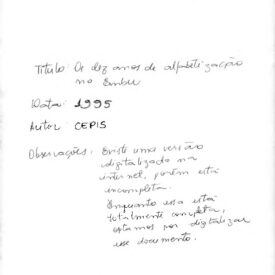 Título: Os dez anos de alfabetização
no Embu
Data: 1995
Autor: CEPIS
Observações: Existe uma versão
digitalizada na
internet, porém está
incompleta.
Enquanto essa está
totalmente completa,
estamos por digitalizar
esse documento.